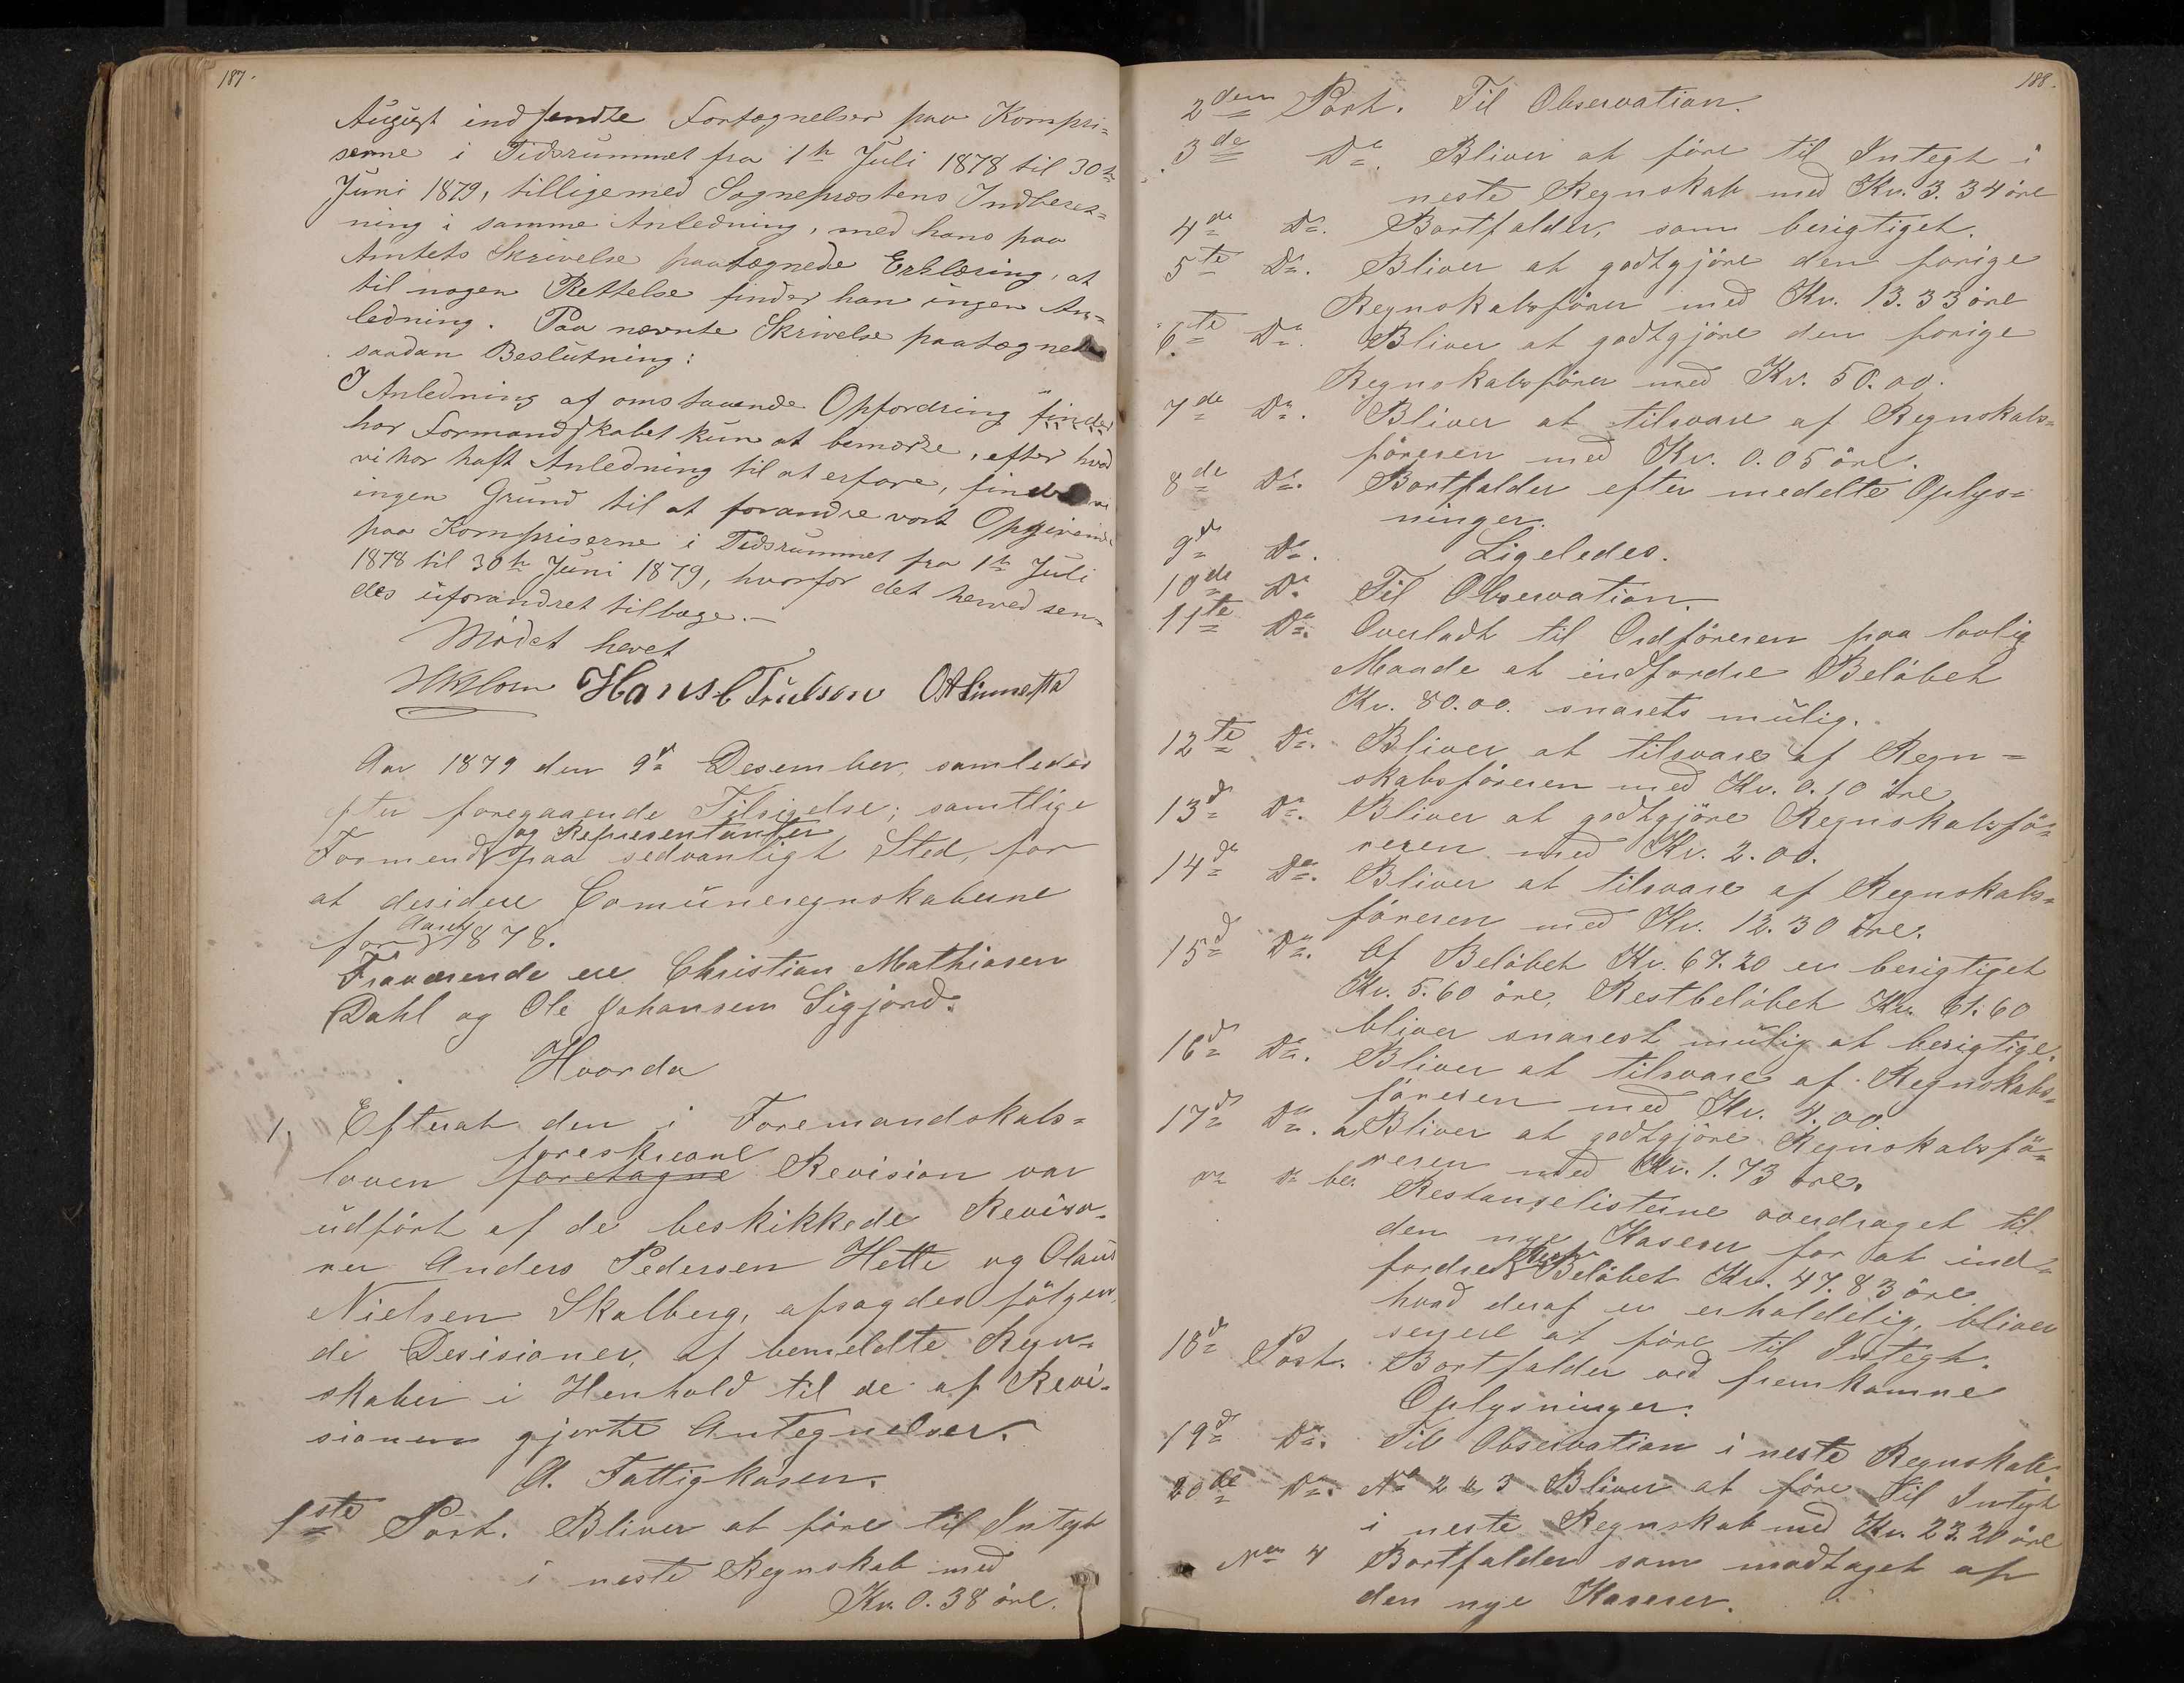 187.
August indsendte Fortegnelser paa Kornpri-
serne i Tidsrummet fra 1ste Juli 1878 til 30te
Juni 1879, tilligemed Sogneprestens Indberet-
ning i samme Anledning, med hans paa
Amtets Skrivelse paategnede Erklæring, at
til nogen Rettelse finder han ingen An-
ledning. Paa nevnte Skrivelse paategnedes
saadan Beslutning:
I Anledning af omstaaende Opfordring finder
har Formandskabet kun at bemærke, efter hvad
vi har haft Anledning til at erfare, finder vi
ingen Grund til at forandre vort Opgivende
paa Kornpriserne i Tidsrummet fra 1te Juli
1878 til 30te Juni 1879, hvorfor det herved sen-
des uforandret tilbage.-
Mödet hevet
Hans C Trulsen
Aar 1879 den 9de Desember, samledes
efter foregaaende Tilsigelse; samtlige
og Representanter
Formend paa sedvanligt Sted, for
at desidere Comuneregnskaberne
Aaret
for 1878.
Fraværende ere Christian Mathiasen
Dahl og Ole Johansen Sigjord.
Hvorda
1. Efterat den i Foremandskabs-
foreskrevne
loven foretagne Revision var
udfört af de beskikkede Reviso-
rer Anders Pedersen Hette og Olaus
Nielsen Skalberg, afsagdes fölgen-
de Desisioner, af bemeldte Regn-
skaber i Henhold til de af Revi-
sionen gjorte Antegnelser.
A. Fattigkasen.
1ste Post. Bliver at före til Integt
i neste Regnskab med
Kr. 0.38 öre.
188.
2den Post. Til Observation.
3de Do. Bliver at före til Integt i
neste Regnskab med Kr. 3.34 öre
4de Do. Bortfalder, som berigtiget.
5te Do. Bliver at godtgjöre den forige
Regnskabsförer med Kr. 13.33 öre
6te Do. Bliver at godtgjöre den forige
Regnskabsförer med Kr. 50.00.
7de Do. Bliver at tilsvare af Regnskabs-
föreren med Kr. 0.05 öre.
8de Do. Bortfalder efter medelte Oplys-
ninger.
9de Do. Ligeledes.
10de Do. Til Observation.
11te Do. Overladt til Ordföreren paa lovlig
Maade at indfordre Belöbet
Kr. 80.00. snarets mulig.
12te Do. Bliver at tilsvare af Regn-
skabsföreren med Kr. 0.10 öre
13de Do. Bliver at godtgjöre Regnskabsfö-
reren med Kr. 2.00.
14de Do. Bliver at tilsvare af Regnskabs-
föreren med Kr. 12.30 öre.
15de Do. Af Belöbet Kr. 67.20 er berigtiget
Kr. 5.60 öre, Restbelöbet Kr. 61.60
bliver snarest mulig at berigtige.
16de Do. Bliver at tilsvare af Regnskabs-
föreren med Kr. 4.00
17de Do. a Bliver at godtgjöre Regnskabsfö-
reren med Kr. 1.73 öre.
Restanselisterne overdraget til
den nye Kaserer for at ind-
fordre Belöbet Kr. 47.83 öre
hvad deraf er erholdelig, bliver
senere at före til Integt.
18de Post. Bortfalder ved fremkomne
Oplysninger.
19de Do. Til Observation i neste Regnskab.
20de Do. No 2 & 3 Bliver at före til Integt
i neste Regnskab med Kr. 23.20 öre
No 4 Bortfalder som modtaget af
den nye Kaserer.